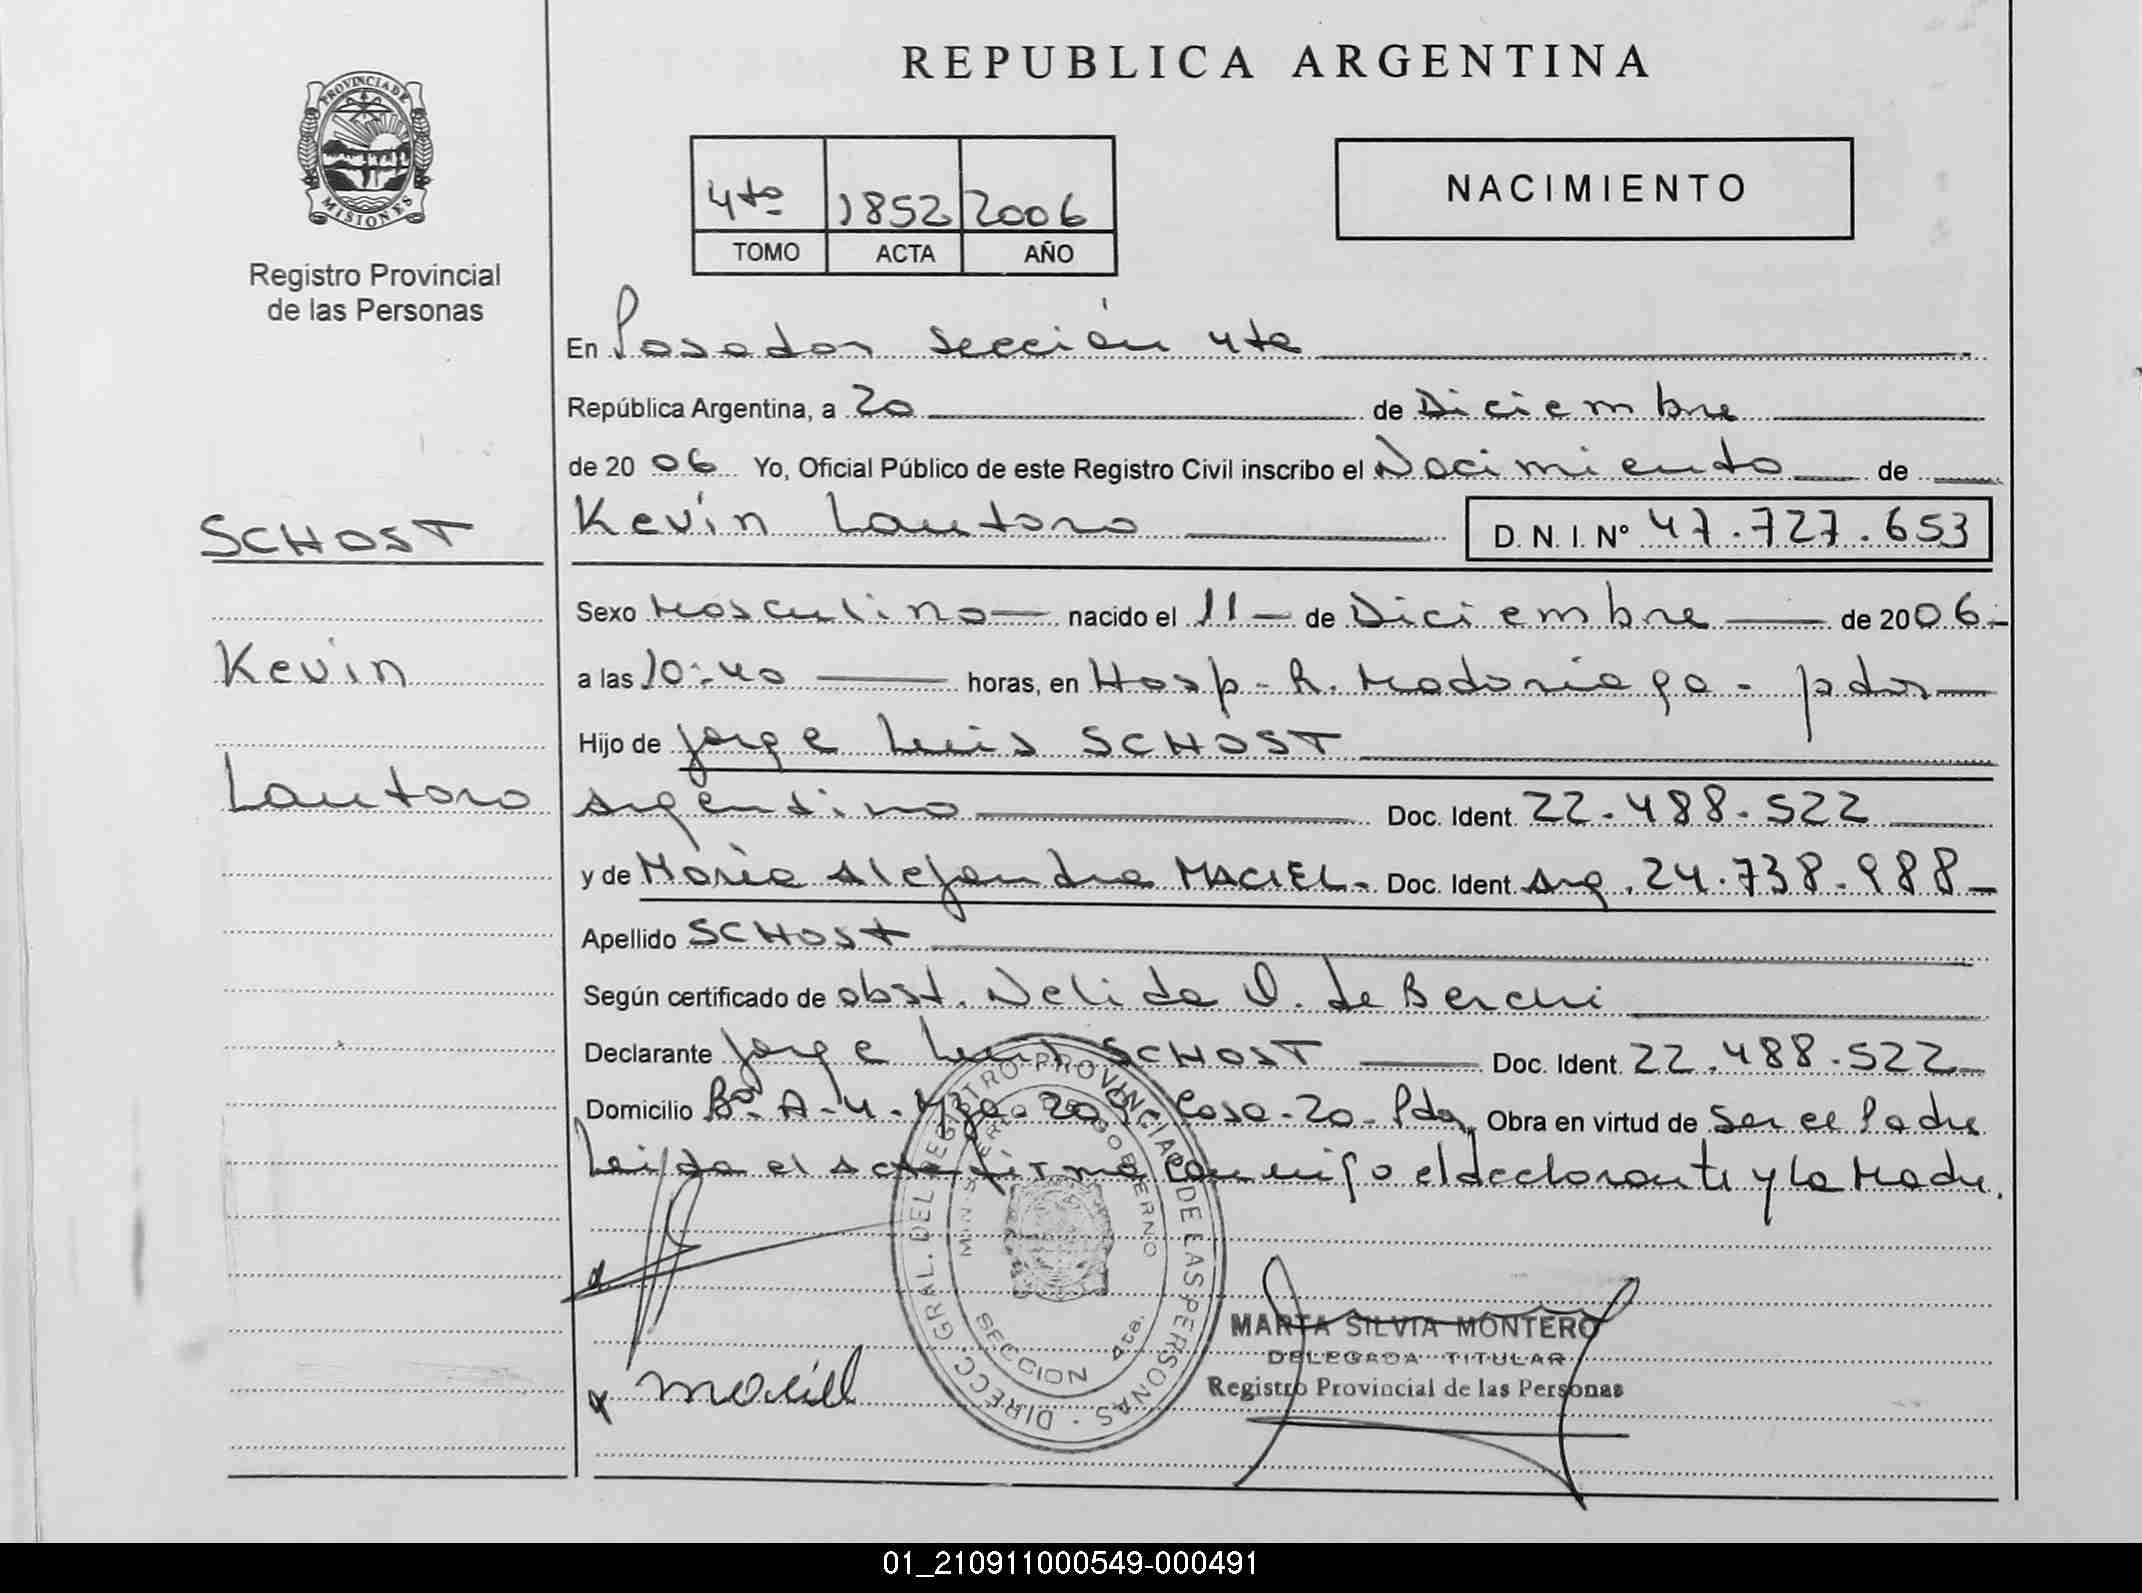 REPUBLICA ARGENTINA
PROVINCIA DE MISIONES
Registro Provincial
de las Personas
4to 1852 2006
TOMO ACTA AÑO
NACIMIENTO
En Posadas sección 4ta
República Argentina, a 20 de Diciembre
de 2006 Yo, Oficial Público de este Registro Civil inscribo el Nacimiento de
Kevin Lautaro D. N. I. Nº 47.727.653
SCHOST
Kevin
Lautaro
Sexo Masculino nacido el 11 de Diciembre de 2006.
a las 10:40 horas, en Hosp. R. Madariaga - pdas
Hijo de Jorge Luis SCHOST
Argentino Doc. Ident. 22.488.522
y de María Alejandra MACIEL. Doc. Ident. Arg. 24.738.988
Apellido SCHOST
Según certificado de obst. Nelida O. de Berchi
Declarante Jorge Luis SCHOST Doc. Ident. 22.488.522
Domicilio Bº A-4. Mza. Casa-20-Pdas Obra en virtud de ser el Padre
Leída el acta firma conmigo el declarante y la Madre.
DIRECC. GRAL. DEL REGISTRO PROVINCIAL DE LAS PERSONAS
MINISTERIO DE GOBIERNO
SECCION 4ta.
MARTA SILVIA MONTERO
DELEGADA TITULAR
Registro Provincial de las Personas
Maciel
01_210911000549-000491